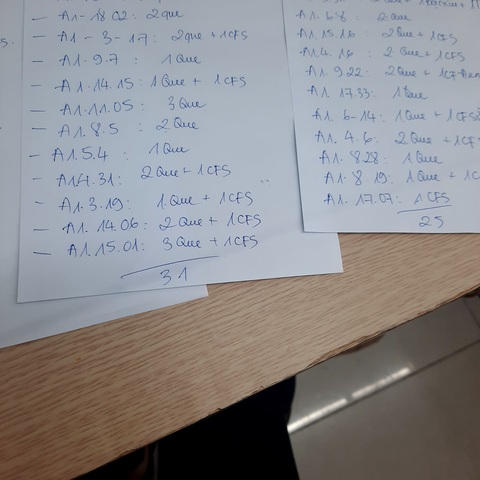 - A1-18.02: 2que
- A1-3-17: 2que + 1CFS
- A1.9.7 : 1Que
- A1.14.15: 1Que + 1CFS
- A1.11.05: 3Que
- A1.8.5 : 2Que
- A1.5.4 : 1Que
- A1.4.31: 2Que + 1CFS
- A1.3.19: 1.Que + 1CFS
- A1.14.06: 2Que + 1CFS
- A1.15.01: 3Que + 1CFS
31
A1.6.8 : 2Que
A1.15.16: 2Que + 1CFS
A1.4.16 : 2Que + 1CFS
A1.9.22: 2Que +
A1.17.33: 1Que
A1.6-14: 1Que + 1CFS
A1.4.6: 2Que + 1CF
A1.8.28: 1Que
A1.8.19: 1Que + 1C
A1.17.07: 1CFS
25